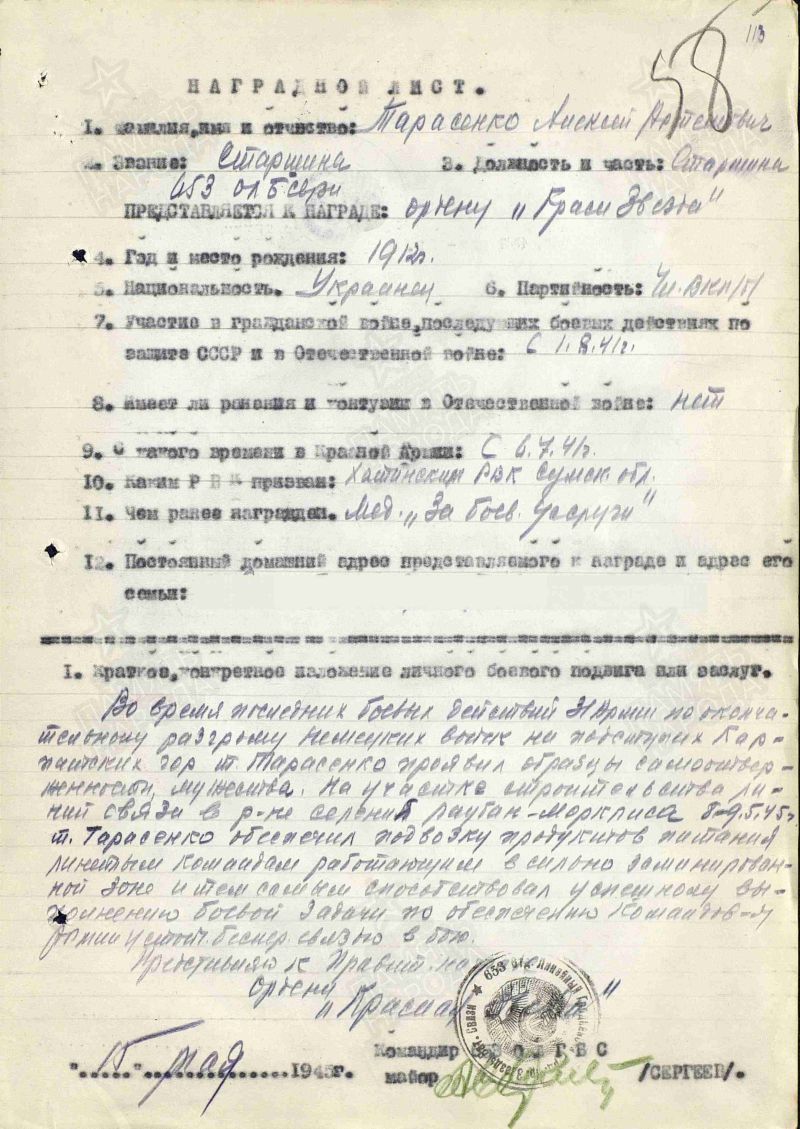 113
58
НАГРАДНОЙ ЛИСТ.
1. Фамилия, имя и отчество: Тарасенко Алексей Артемович
2. Звание: Старшина 3. Должность и часть: Старшина
653 олбсвязи
ПРЕДСТАВЛЯЕТСЯ К НАГРАДЕ: ордену „Красн Звезда"
4. Год и место рождения: 1912г.
5. Национальность. Украинец 6. Партийность: Чл. ВКП/б/
7. Участие в гражданской войне, последующих боевых действиях по
защите СССР и в Отечественной войне: С 1.8.41г.
8. Имеет ли ранения и контузии в Отечественной войне: нет
9. С какого времени в Красной Армии: С 6.7.41г.
10. Каким РВК призван: РВК Сумск. обл.
11. Чем ранее награжден. Мед. „За боев. услуги"
12. Постоянный домашний адрес представляемого к награде и адрес его
семьи:
1. Краткое, конкретное изложение личного боевого подвига или заслуг.
Во время последних боевых действий Армии по оконча-
тельному разгрому немецких войск на подступах Кар-
патских гор т. Тарасенко проявил образцы самоотвер-
женности, мужества. На участке строительства ли-
ний связи в р-не селений 8-9.5.45г
т. Тарасенко обеспечил подвозку продуктов питания
линейным командам работающим в сильно заминирован-
ной зоне и тем самым способствовал успешному вы-
полнению боевой задачи по обеспечению Командов-я
Армии устойч. беспер. связью в бою.
Представляю к Правит.
ордену
„Красная
653 Отд. Линейный Связи
"15" мая 1945г.
Командир ОЛБС
майор /СЕРГЕЕВ/.